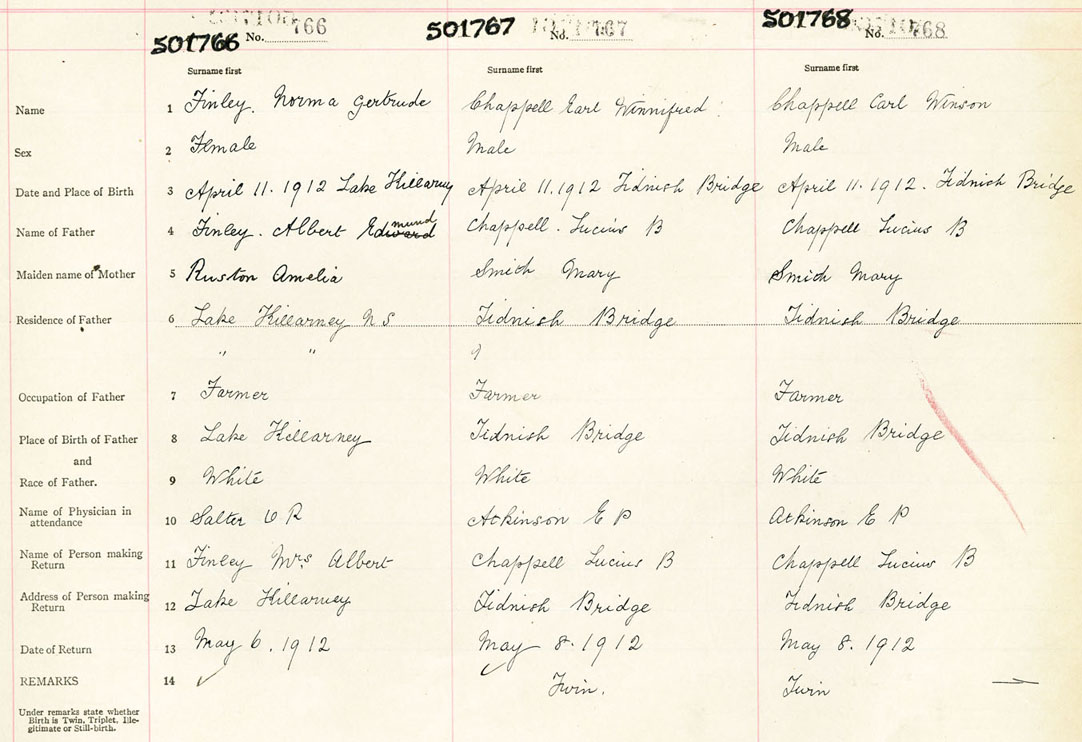 501766 No. 766 501767 No. 767 501768 No. 768
Surname first Surname first Surname first
Name 1 Finley. Norma Gertrude Chappell Earl Winnifred Chappell Carl Winson
Sex 2 Female Male Male
Date and Place of Birth 3 April 11. 1912 Lake Killarney April 11. 1912 Tidnish Bridge April 11. 1912. Tidnish Bridge
Name of Father 4 Finley. Albert Edward mund Chappell. Lucius B Chappell Lucius B
Maiden name of Mother 5 Ruston Amelia Smith Mary Smith Mary
Residence of Father 6 Lake Killarney N S Tidnish Bridge Tidnish Bridge
" "
Occupation of Father 7 Farmer Farmer Farmer
Place of Birth of Father 8 Lake Killarney Tidnish Bridge Tidnish Bridge
and
Race of Father. 9 White White White
Name of Physician in
attendance 10 Salter W R Atkinson E P Atkinson E P
Name of Person making
Return 11 Finley Mrs. Albert Chappell Lucius B Chappell Lucius B
Address of Person making
Return 12 Lake Killarney Tidnish Bridge Tidnish Bridge
Date of Return 13 May 6. 1912 May 8. 1912 May 8. 1912
REMARKS 14 ✓ ✓ Twin. Twin
Under remarks state whether
Birth is Twin, Triplet, Ille-
gitimate or Still-birth.